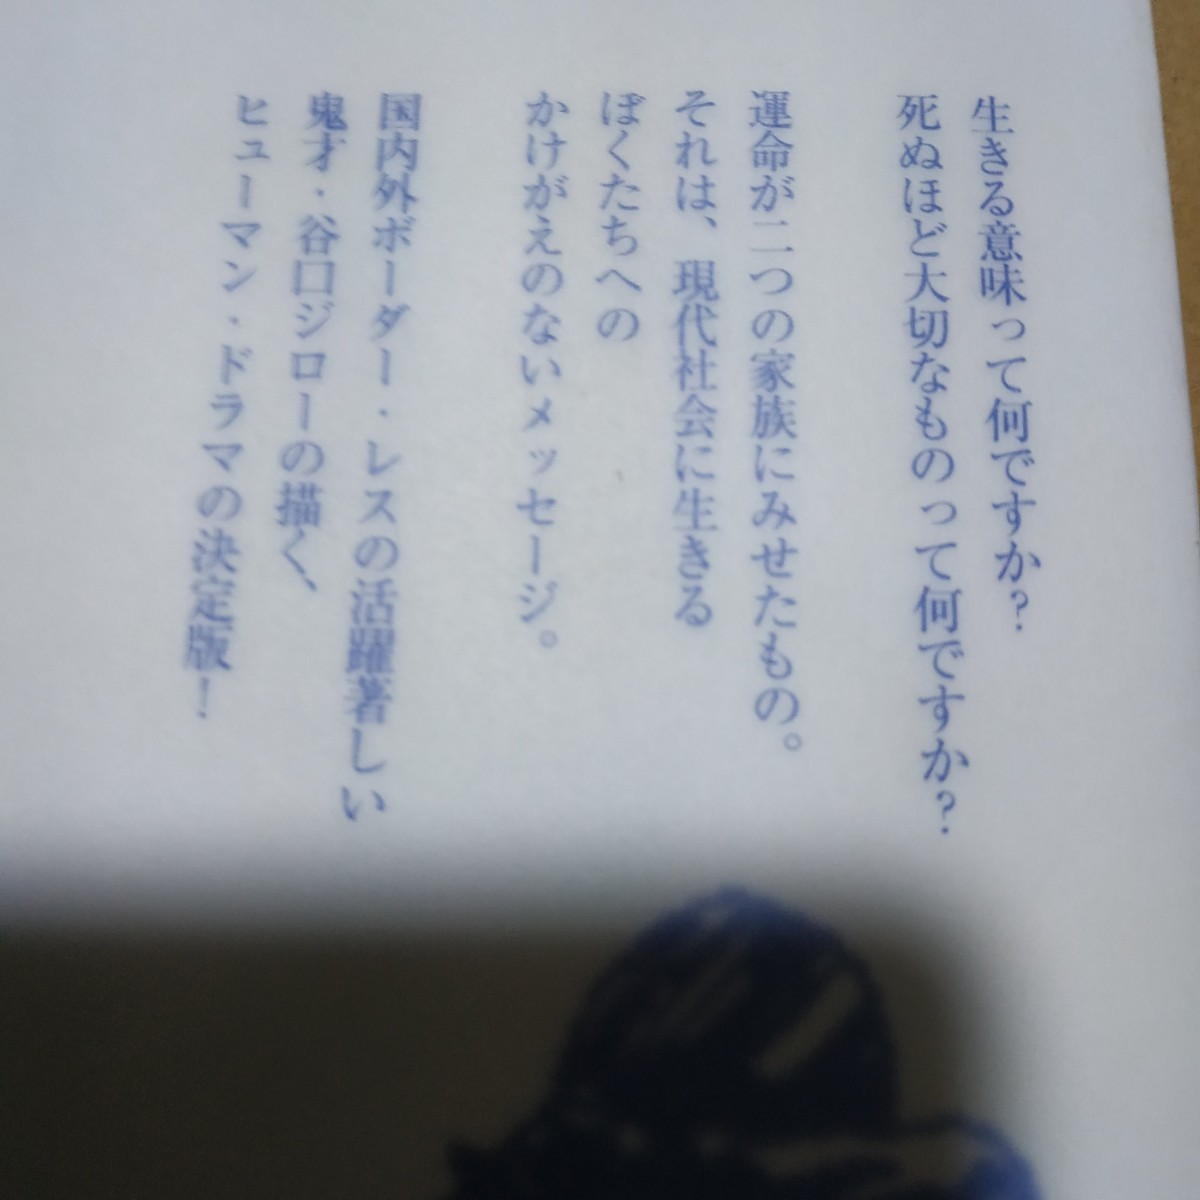 生きる意味って何ですか?
死ぬほど大切なものって何ですか?
運命が二つの家族にみせたもの。
それは、現代社会に生きる
ぼくたちへの
かけがえのないメッセージ。
国内外ボーダー・レスの活躍著しい
鬼才・谷口ジローの描く、
ヒューマン・ドラマの決定版!